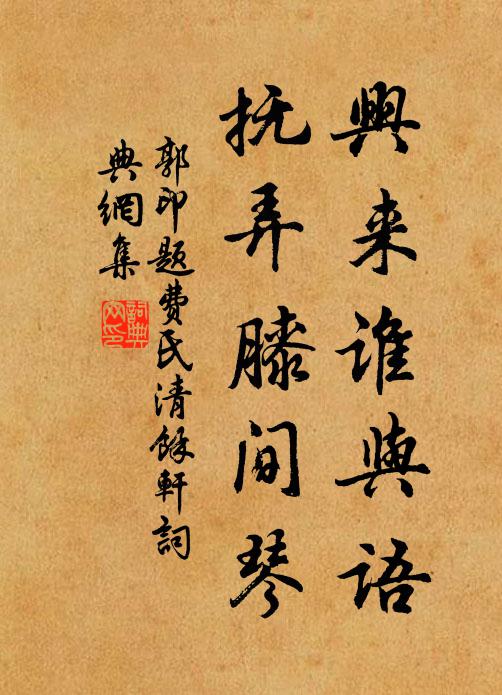 興来谁與语
抚弄膝间琴
郭印题費氏清馀軒詞
典網集
詞典
网印